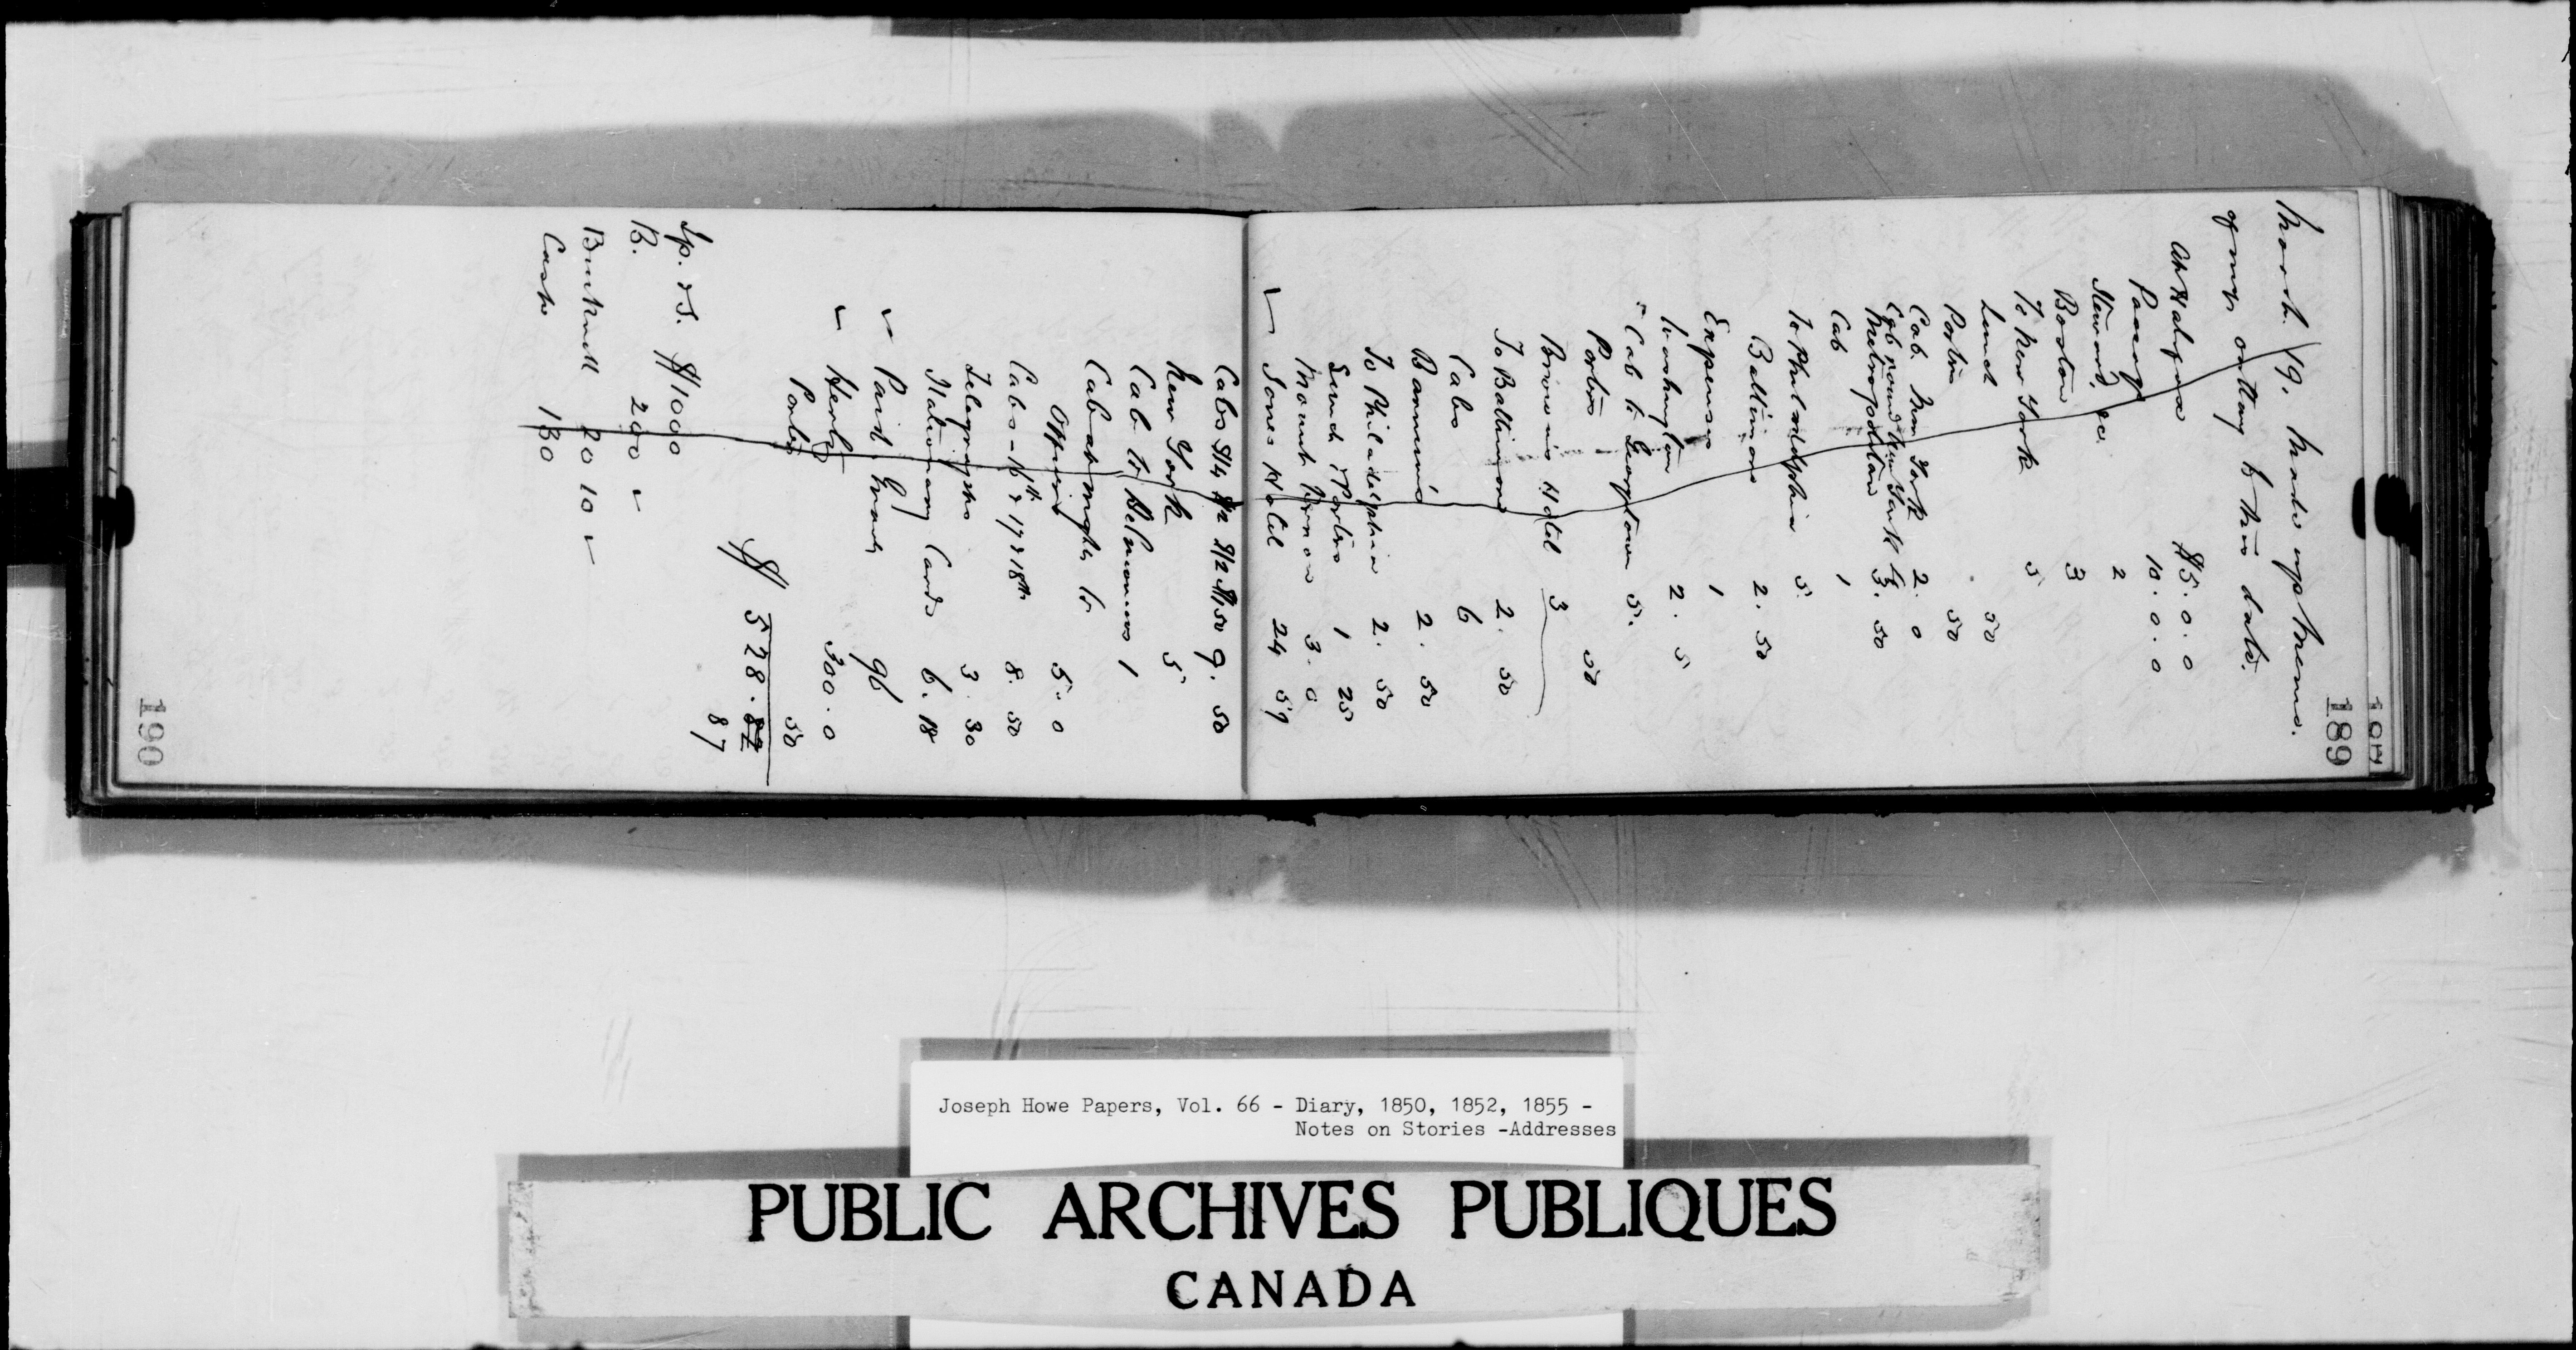 189
March 19. Made up memo.
of my outlay to this date.
At Halifax $5.0.0
Passage 10.0.0
Steward, &c. 2
Boston 3
To New York 5
Lunch 50
Porter 50
Cab New York 2.0
Cab round New York
Metropolitan 3.50
Cab 1
To Philadelphia 5.
Baltimore 2.50
Expenses 1
Washington 2.5
" Cab to Georgetown 5.
Porter 50
Browns Hotel 3
To Baltimore 2.50
Cabs 6
Barnum's 2.50
To Philadelphia 2.50
Lunch & Porter 1 25
Mount Vernon 3.0
Jones Hotel 24 59
Cabs $4 $2 $2 $1.50 9.50
New York 5
Cab to Delmonicos 1
Cab at night to
Officers 5.0
Cabs - 16th & 17 & 18th 8.50
Telegraphs 3.30
Stationery Cards 6.18
Paid Grant 96
Hertz 300.0
Porter 50
$ 528.82
87
Sp. & S. $1000
B. 200
Bucknall 20 10
Cash 130
190
Joseph Howe Papers, Vol. 66 - Diary, 1850, 1852, 1855 -
Notes on Stories -Addresses
PUBLIC ARCHIVES PUBLIQUES
CANADA